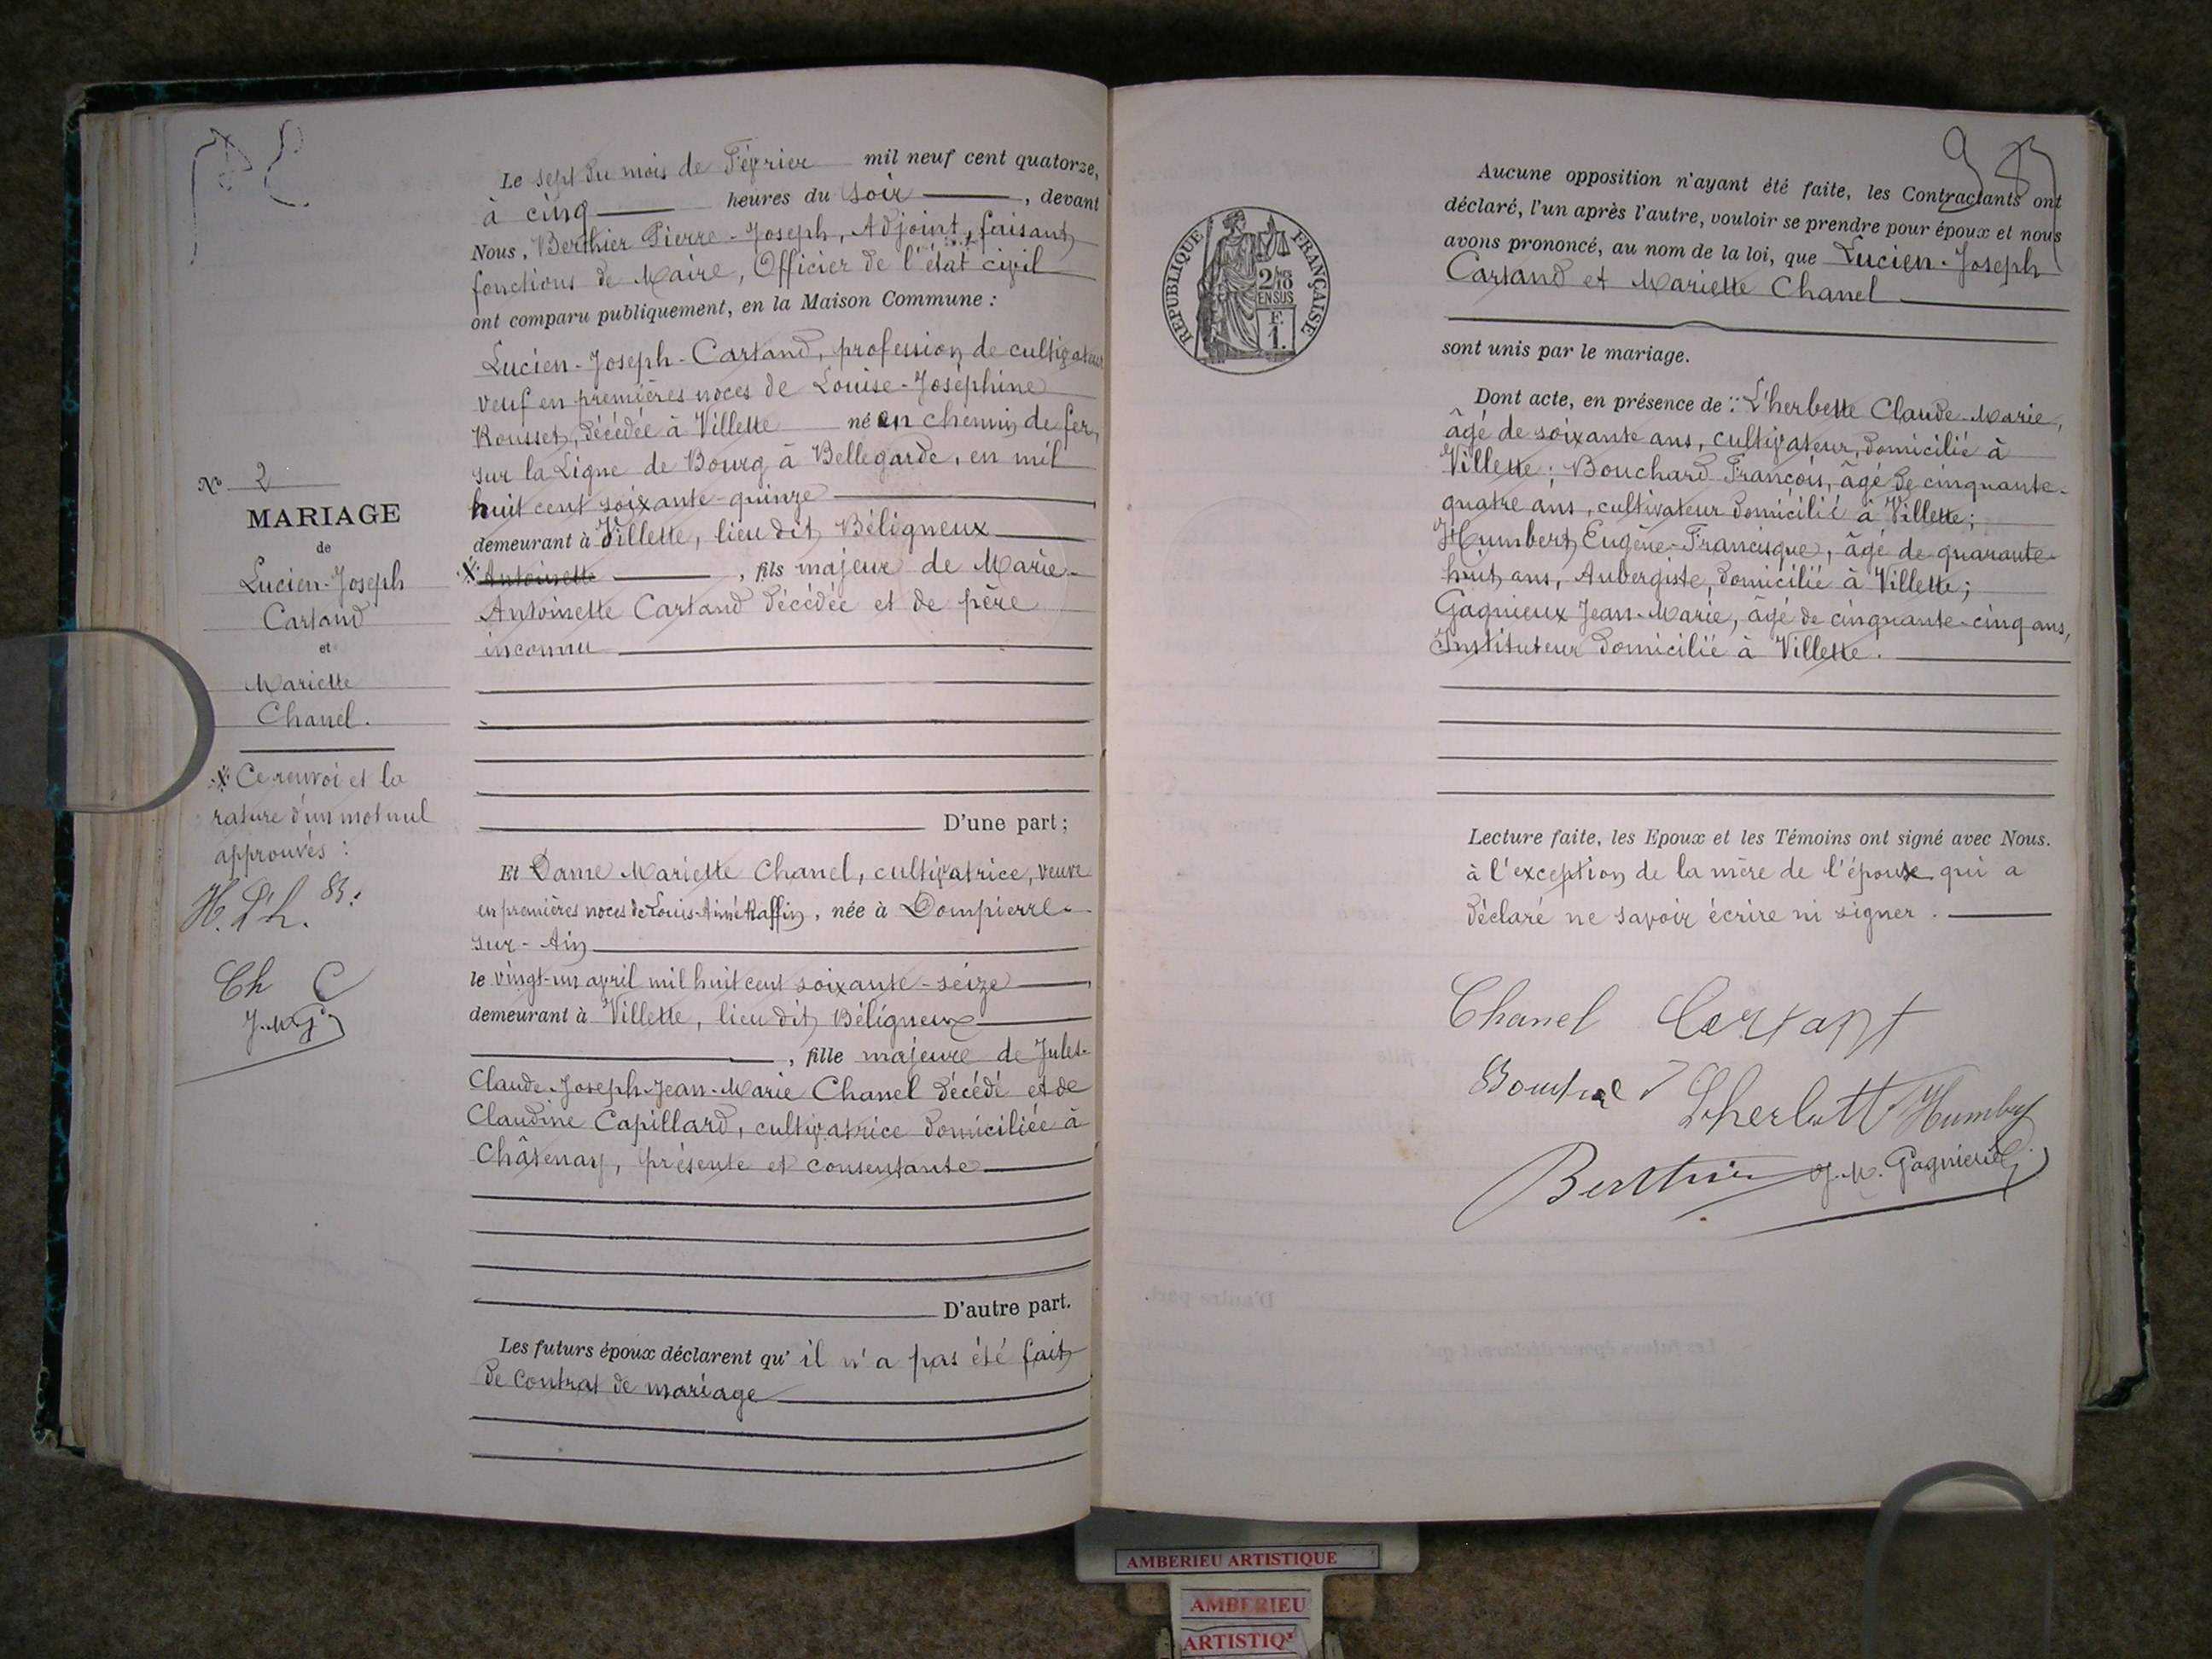 N° 2
MARIAGE
de
Lucien-Joseph
Cartand
et
Mariette
Chanel.
X Ce renvoi et la
rature d'un mot nul
approuvés :
H. L'h. B.
Ch C
J.M.G.
Le sept du mois de Février mil neuf cent quatorze,
à cinq heures du soir, devant
Nous, Berthier Pierre-Joseph, Adjoint, faisant
fonctions de Maire, Officier de l'état civil
ont comparu publiquement, en la Maison Commune :
Lucien-Joseph-Cartand, profession de cultivateur
veuf en premières noces de Louise-Joséphine
Rousset, décédée à Villette né en chemin de fer,
sur la Ligne de Bourg à Bellegarde, en mil
huit cent soixante-quinze
demeurant à Villette, lieu dit Béligneux
X Antoinette, fils majeur de Marie-
Antoinette Cartand décédée et de père
inconnu
D'une part;
Et Dame Mariette Chanel, cultivatrice, veuve
en premières noces de Louis-Aimé Raffin, née à Dompierre-
sur-Ain
le vingt-un avril mil huit cent soixante-seize
demeurant à Villette, lieu dit Béligneux
, fille majeure de Jules-
Claude-Joseph-Jean-Marie Chanel décédé et de
Claudine Capillard, cultivatrice domiciliée à
Châtenay, présente et consentante
D'autre part.
Les futurs époux déclarent qu'il n'a pas été fait
de contrat de mariage
REPUBLIQUE FRANÇAISE
2/10
EN SUS
F.
1.
Aucune opposition n'ayant été faite, les Contractants ont
déclaré, l'un après l'autre, vouloir se prendre pour époux et nous
avons prononcé, au nom de la loi, que Lucien-Joseph
Cartand et Mariette Chanel
sont unis par le mariage.
Dont acte, en présence de : L'herbette Claude-Marie,
âgé de soixante ans, cultivateur, domicilié à
Villette; Bouchard François, âgé de cinquante-
quatre ans, cultivateur domicilié à Villette;
Humbert Eugène-Francisque, âgé de quarante-
huit ans, Aubergiste, domicilié à Villette;
Gagnieux Jean-Marie, âgé de cinquante-cinq ans,
Instituteur domicilié à Villette.
Lecture faite, les Epoux et les Témoins ont signé avec Nous.
à l'exception de la mère de l'épouse qui a
déclaré ne savoir écrire ni signer.
Chanel Cartant
Bouchard Lherbett Humbert
Berthier J. M. Gagnieux
AMBERIEU ARTISTIQUE
AMBERIEU
ARTISTIQ